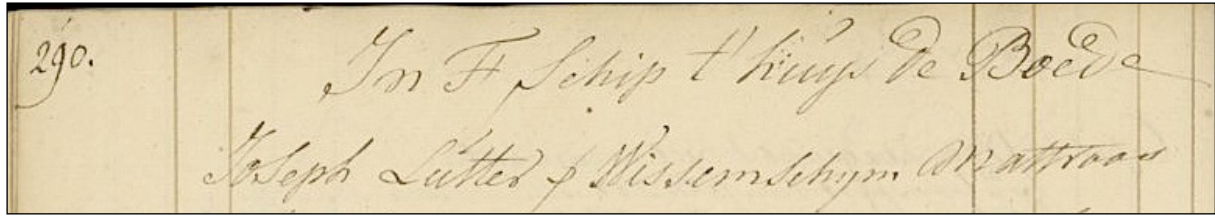 290. In 't Schip t' huys de Boede
Joseph Lutter / Wissemschym Mattroos